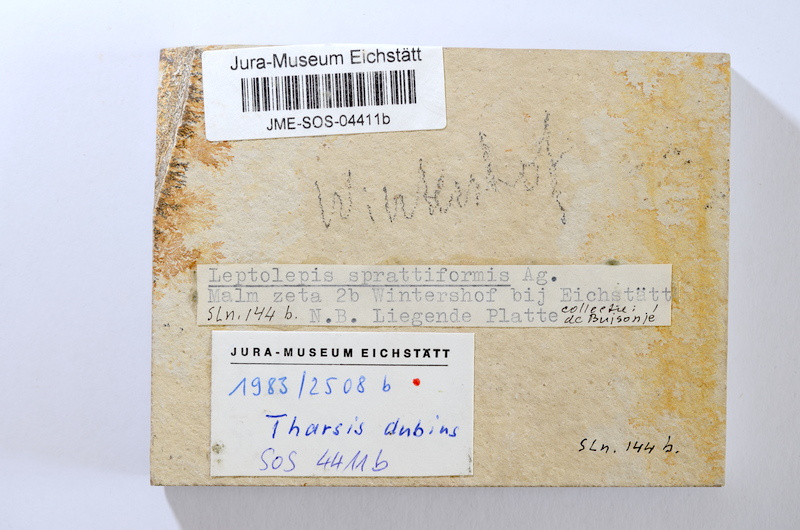 Jura-Museum Eichstätt
JME-SOS-04411b
Wintershof
Leptolepis sprattiformis Ag.
Malm zeta 2b Wintershof bij Eichstätt
SLn. 144 b. N.B. Liegende Platte collectie:
de Buisonjé
JURA-MUSEUM EICHSTÄTT
1983/2508 b
Tharsis dubius
SOS 4411b
SLn. 144 b.